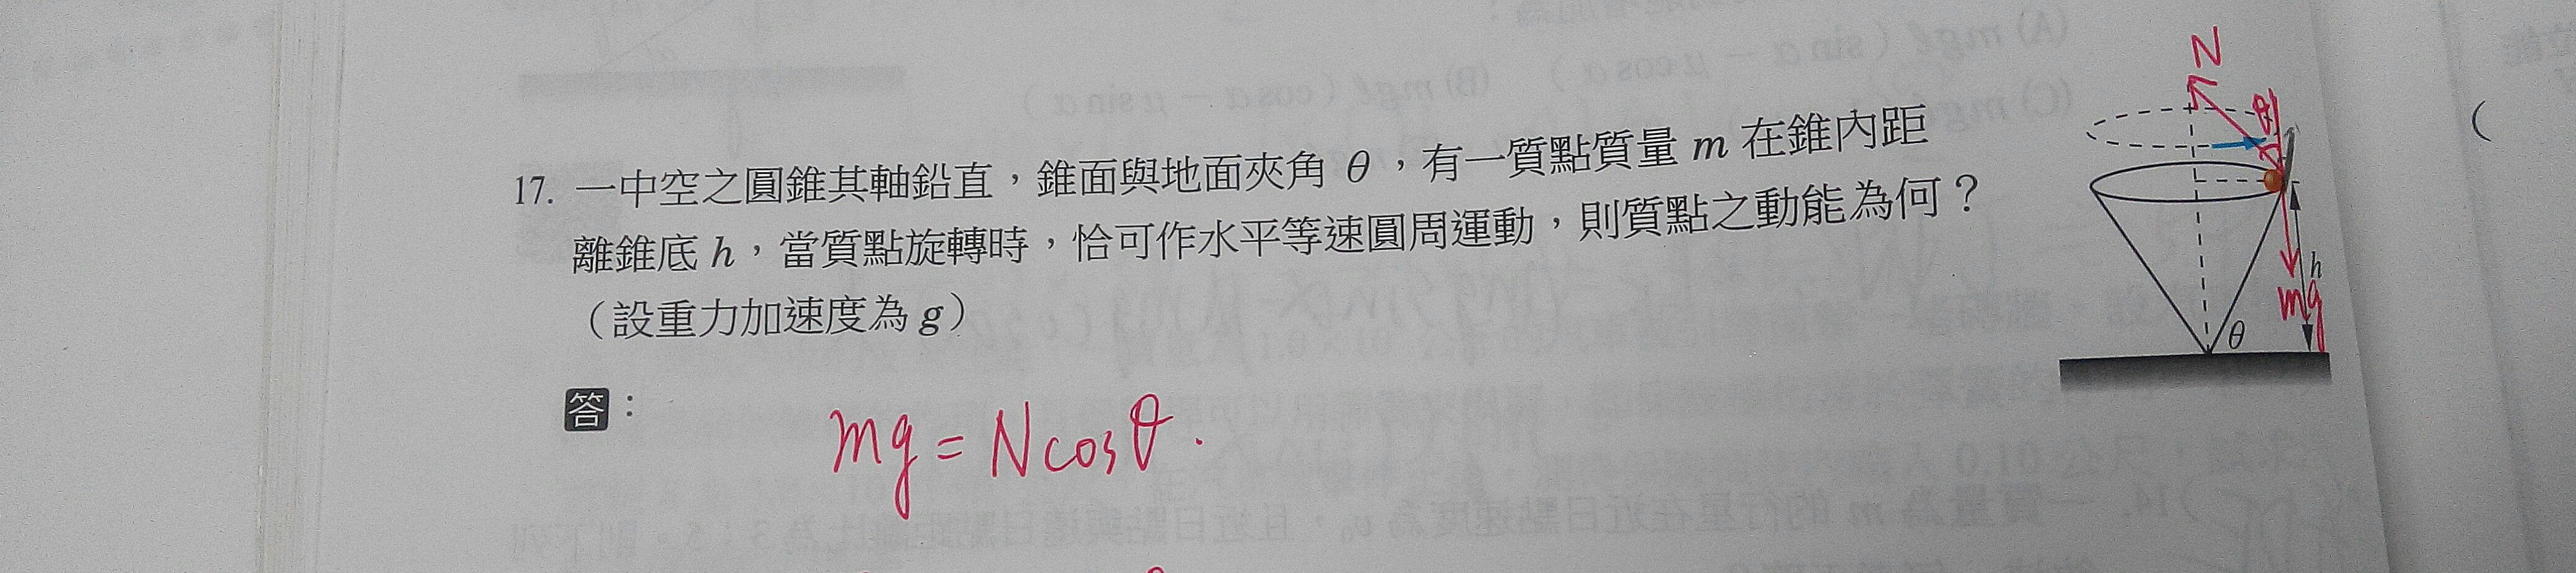 (A) mgℓ ( sin α − μ cos α )
(B) mgℓ ( cos α − μ sin α )
(C) mg
N
θ
17. 一中空之圓錐其軸鉛直，錐面與地面夾角 θ，有一質點質量 m 在錐內距
離錐底 h，當質點旋轉時，恰可作水平等速圓周運動，則質點之動能為何？
（設重力加速度為 g）
h
mg
θ
答：
mg = N cosθ .
(